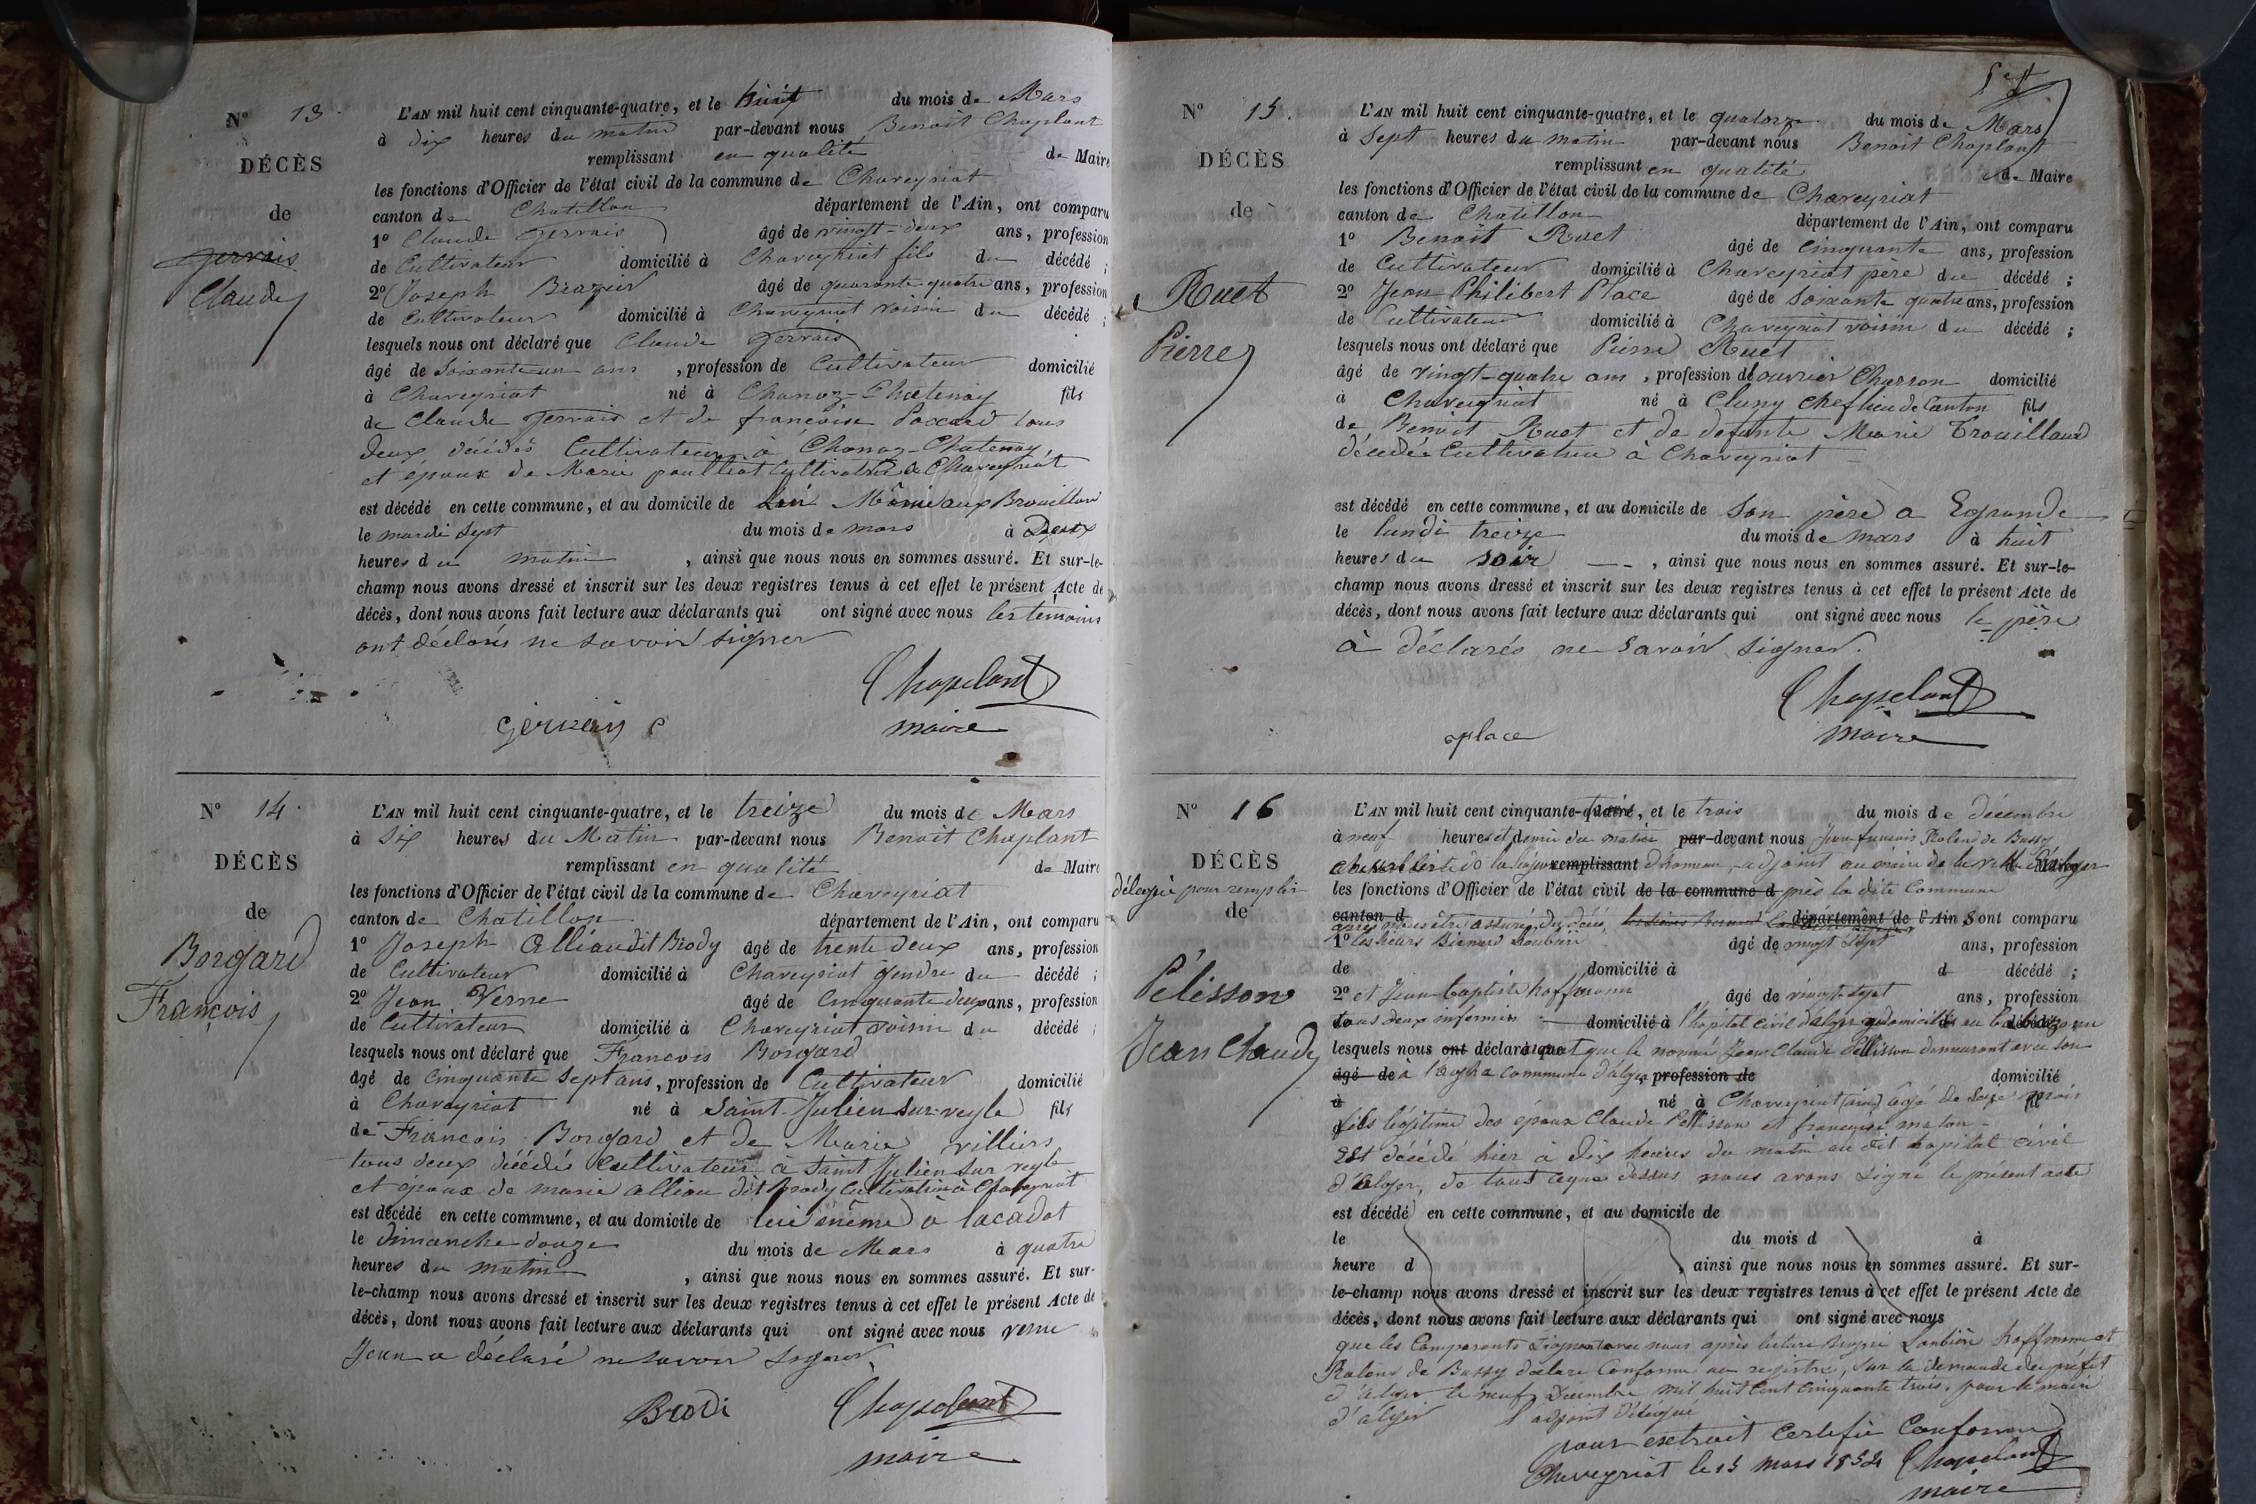 N° 13.
DÉCÈS
de
Gervais
Claude
L'AN mil huit cent cinquante-quatre, et le huit du mois de Mars
à dix heures du matin par-devant nous Benoit Chaplant
remplissant en qualité de Maire
les fonctions d'Officier de l'état civil de la commune de Chaveyriat
canton de Chatillon département de l'Ain, ont comparu
1° Claude Gervais âgé de vingt-deux ans, profession
de Cultivateur domicilié à Chaveyriat fils du décédé ;
2° Joseph Brazier âgé de quarante quatre ans, profession
de Cultivateur domicilié à Chaveyriat voisin du décédé ;
lesquels nous ont déclaré que Claude Gervais
âgé de soixante-un ans, profession de Cultivateur domicilié
à Chaveyriat né à Chanoz-Chatenay fils
de Claude Gervais et de françoise Paccard tous
deux décédés Cultivateurs à Chanoz-Chatenay
et époux de Marie Cultivatrice à Chaveyriat
est décédé en cette commune, et au domicile de Lui Même aux Brouillon
le mardi sept du mois de mars à Deux
heures du matin, ainsi que nous nous en sommes assuré. Et sur-le-
champ nous avons dressé et inscrit sur les deux registres tenus à cet effet le présent Acte de
décès, dont nous avons fait lecture aux déclarants qui ont signé avec nous les témoins
ont déclarés ne savoir signer
Chapelant
gervais c maire
N° 14.
DÉCÈS
de
Borgard
François
L'AN mil huit cent cinquante-quatre, et le treize du mois de Mars
à Six heures du Matin par-devant nous Benoit Chaplant
remplissant en qualité de Maire
les fonctions d'Officier de l'état civil de la commune de Chaveyriat
canton de Chatillon département de l'Ain, ont comparu
1° Joseph Alliau dit Brody âgé de trente deux ans, profession
de Cultivateur domicilié à Chaveyriat gendre du décédé ;
2° Jean Verne âgé de Cinquante deux ans, profession
de Cultivateur domicilié à Chaveyriat voisin du décédé ;
lesquels nous ont déclaré que François Borgard
âgé de Cinquante sept ans, profession de Cultivateur domicilié
à Chaveyriat né à Saint-Julien sur-veyle fils
de François Borgard et de Marie villiers
tous deux décédés Cultivateur à Saint Julien sur veyle
et époux de marie alliau dit Brody Cultivatrice à Chaveyriat
est décédé en cette commune, et au domicile de lui même à lacadot
le Dimanche douze du mois de Mars à quatre
heures du matin, ainsi que nous nous en sommes assuré. Et sur-
le-champ nous avons dressé et inscrit sur les deux registres tenus à cet effet le présent Acte de
décès, dont nous avons fait lecture aux déclarants qui ont signé avec nous verne
Jean a déclaré ne savoir signer
Brodi Chapelant
maire
Sept
N° 15.
DÉCÈS
de
Ruet
Pierre
L'AN mil huit cent cinquante-quatre, et le quatorze du mois de Mars
à Sept heures du matin par-devant nous Benoit Chaplant
remplissant en qualité de Maire
les fonctions d'Officier de l'état civil de la commune de Chaveyriat
canton de Chatillon département de l'Ain, ont comparu
1° Benoit Ruet âgé de cinquante ans, profession
de Cultivateur domicilié à Chaveyriat père du décédé ;
2° Jean Philibert Place âgé de Soixante quatre ans, profession
de Cultivateur domicilié à Chaveyriat voisin du décédé ;
lesquels nous ont déclaré que Pierre Ruet
âgé de vingt-quatre ans, profession d'ouvrier Charron domicilié
à Chaveyriat né à Cluny chef lieu de Canton fils
de Benoit Ruet et de defunte Marie Trouilloud
décédée Cultivateur à Chaveyriat
est décédé en cette commune, et au domicile de Son père a Egrande
le lundi treize du mois de mars à huit
heures du soir, ainsi que nous nous en sommes assuré. Et sur-le-
champ nous avons dressé et inscrit sur les deux registres tenus à cet effet le présent Acte de
décès, dont nous avons fait lecture aux déclarants qui ont signé avec nous le père
à déclarés ne Savoir signer.
Chapelant
place maire
N° 16
DÉCÈS
délégué pour remplir
de
Pélisson
Jean Claude
L'AN mil huit cent cinquante-trois, et le trois du mois de décembre
à neuf heures et demie du matin par-devant nous Jean francois Roland de Bussy
chevalier de la légion remplissant d'honneur, adjoint au maire de la ville d'alger
les fonctions d'Officier de l'état civil de la commune d près la dite Commune
canton d département de l'Ain, Sont comparu
après nous être assurés du décès,
1° les sieurs Bernard Loubière âgé de vingt sept ans, profession
de domicilié à d décédé ;
2° et Jean-baptiste hoffmann âgé de vingt-sept ans, profession
tous deux infirmiers domicilié à l'hopital civil d'alger
lesquels nous ont déclaré que le nommé Jean Claude Pellisson demeurant avec son
âgé de à l'agha commune d'alger profession de domicilié
à né à Chaveyriat (ain) âgé de Seize mois
fils légitime des époux Claude Pellisson et françoise maton
Est décédé hier à dix heures du matin au dit hopital civil
d'alger, de tout ce que dessus nous avons signé le présent acte
est décédé en cette commune, et au domicile de
le du mois d à
heure d, ainsi que nous nous en sommes assuré. Et sur-
le-champ nous avons dressé et inscrit sur les deux registres tenus à cet effet le présent Acte de
décès, dont nous avons fait lecture aux déclarants qui ont signé avec nous
que les Comparants Signataires nous après lecture Loubière hoffmann et
Roland de Bussy Conforme au registre, sur la demande du préfet
d'alger le neuf Décembre mil huit Cent Cinquante trois. pour le maire
d'alger l'adjoint Délégué
pour extrait Certifié Conforme
Chaveyriat le 15 mars 1854 Chapelant
maire